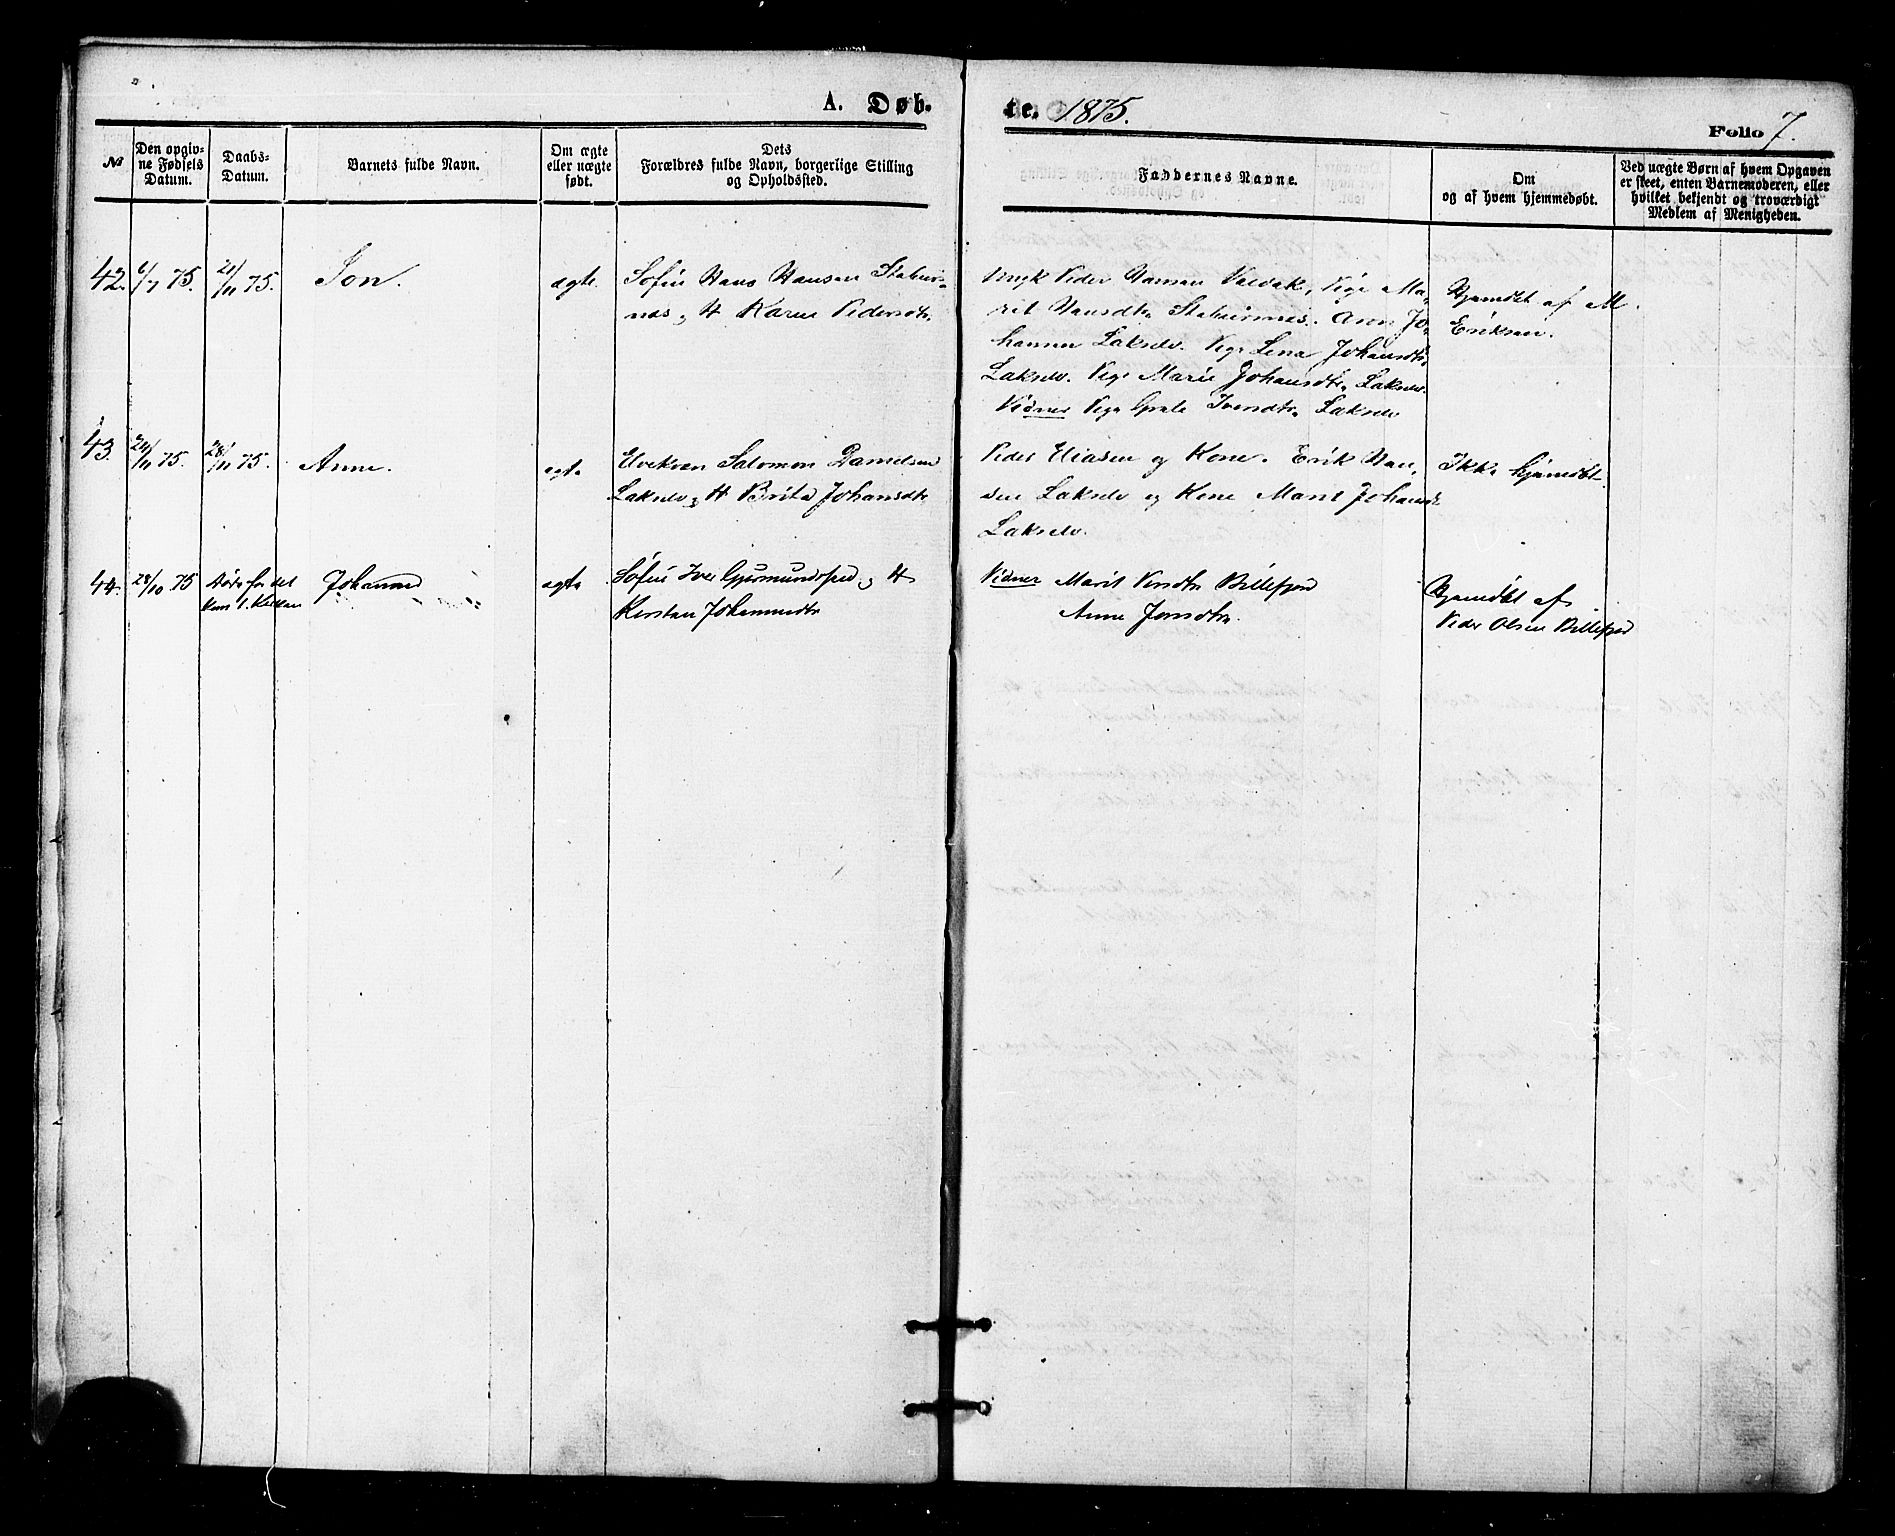 A. Døb-
te. 1875.
Folio 7.
No
Den opgiv-
ne Fødsels
Datum.
Daabs-
Datum.
Barnets fulde Navn.
Om ægte
eller uægte
født.
Dets
Forældres fulde Navn, borgerlige Stilling
og Opholdssted.
Faddernes Navne.
Om
og af hvem hjemmedøbt.
Ved uægte Børn af hvem Opgaven
er skeet, enten Barnemoderen, eller
hvilket bekjendt og troværdigt
Medlem af Menigheden.
42. 6/7 75. 21/11 75. Jon. ægte.
Søfin Hans Hansen Stabur-
næs, og H Karen Pedersdtr.
Peder Hansen Valdak, Pige Ma-
rit Hansdtr Staburnæs. Jo-
hansen Lakselv. Pige Lena Johansdtr,
Lakselv. Pige Marie Johansdtr, Lakselv.
Vidner Pige Grete Iversdtr Lakselv
Hjemdbt af M.
Eriksen.
43. 24/11 75. 28/11 75. Anne. ægte
Elvekvæn Salomon Danielsen
Lakselv og H Brita Johansdtr
Peder Eliasen og Kone. Erik Han-
sen Lakselv og Kone Marit Johansdtr
Lakselv.
Ikke hjemdbt.
44. 28/10 75 Døde før det
kom t. Kirken
Johannes ægte
Søfin Iver Gjermundsen og H
Kirsten Johannesdtr
Vidner Marit Billefjord
Anne Jonsdtr.
Hjemdbt af
Peder Olsen Billefjord